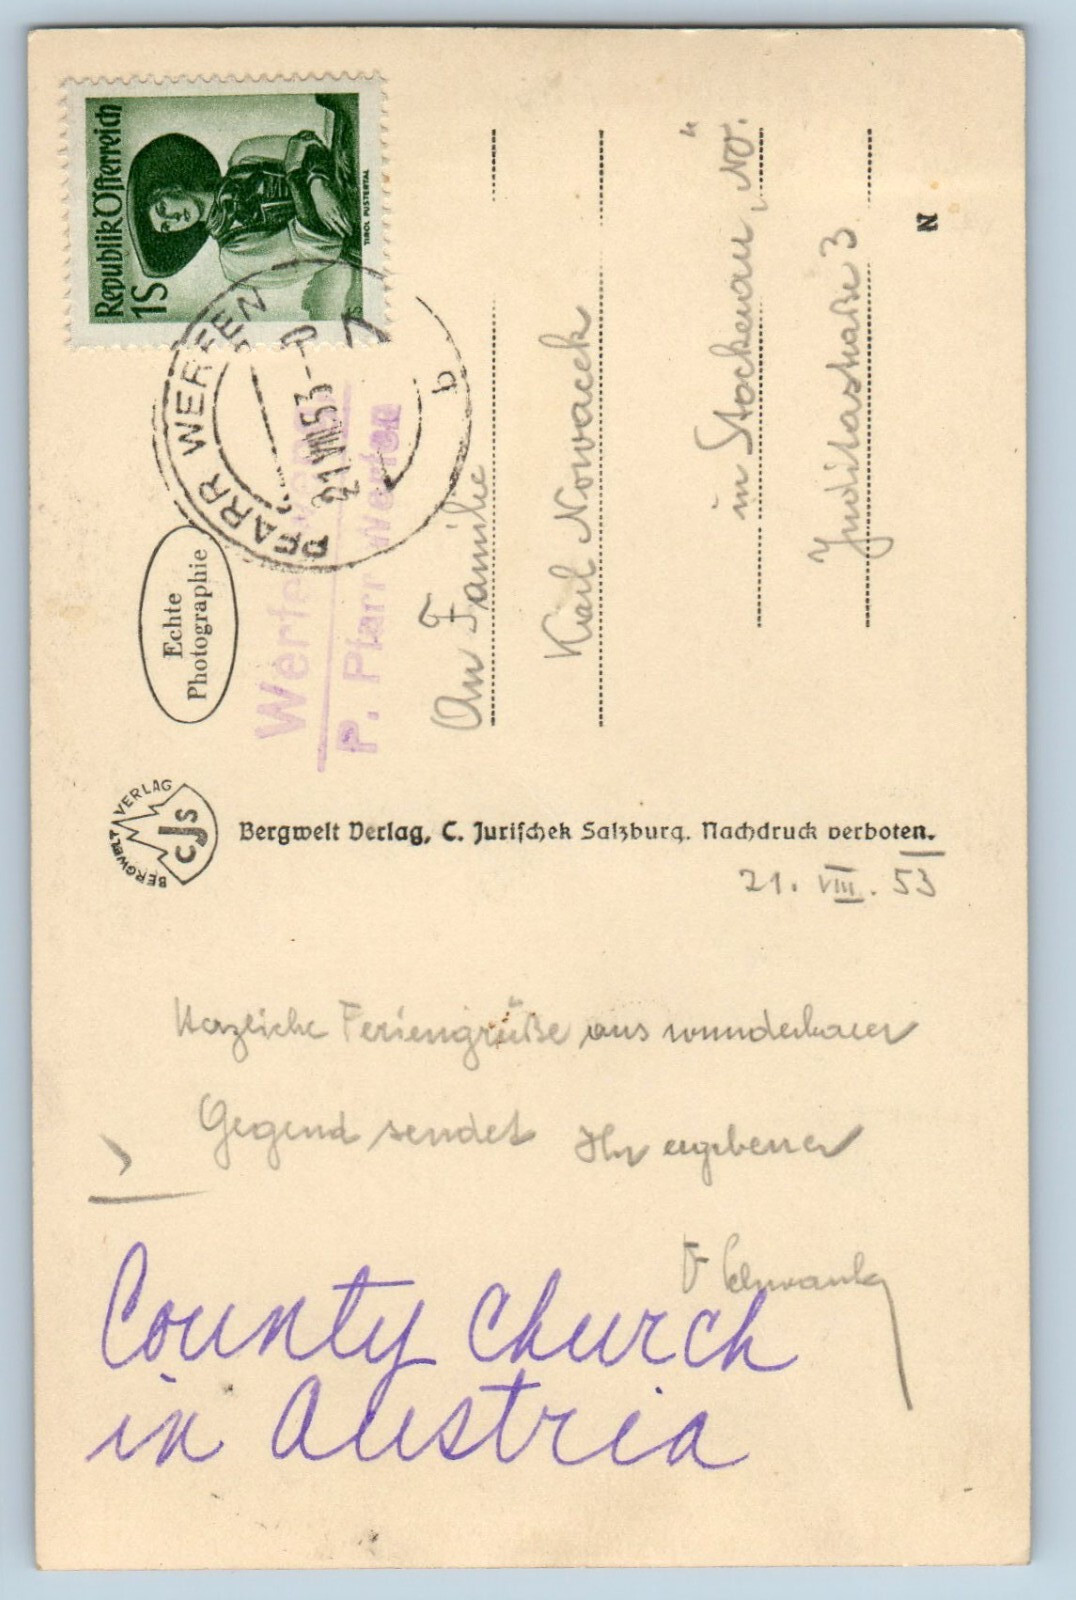 Republik Österreich
1S
TIROL PUSTERTAL
PFARR WERFEN
21.VIII.53
b
Echte
Photographie
Werfen
P. Pfarr Werfen
An Familie
Karl Nowacek
in Stockerau, NÖ.
Juditastraße 3
N
BERGWELT VERLAG
CJS
Bergwelt Verlag, C. Jurischek Salzburg. Nachdruck verboten.
21. VIII. 53
Herzliche Feriengrüße aus wunderbarer
Gegend sendet Ihr ergebener
County Church
in Austria